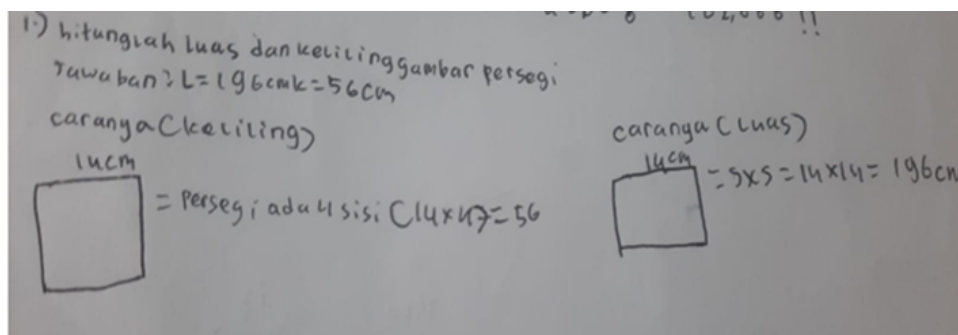 102,000 !!
1.) hitunglah luas dan keliling gambar persegi
Jawaban: L=196cm k=56cm
caranya (keliling)
14cm
= persegi ada 4 sisi (14x4)=56
caranya (luas)
14cm
= sxs = 14x14 = 196cm